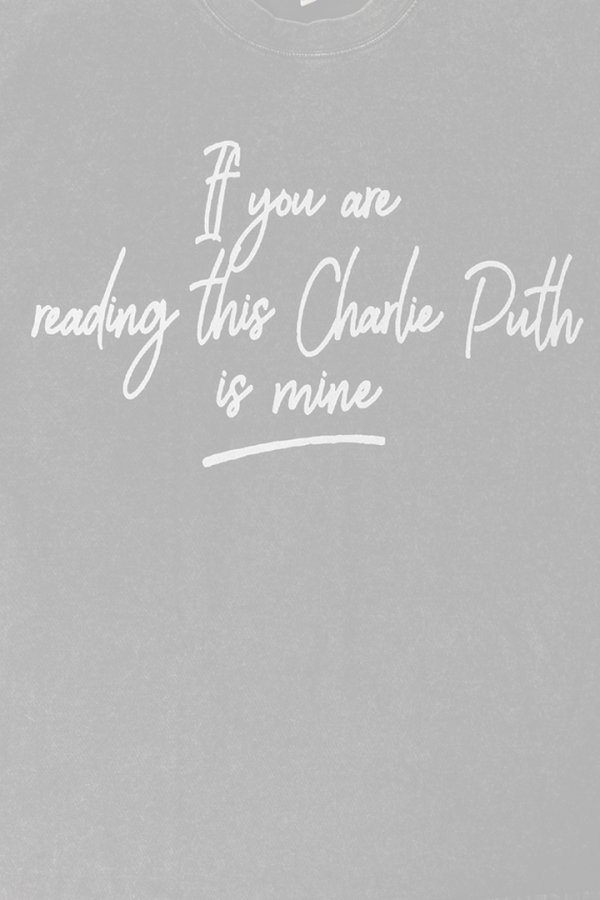 If you are
reading this Charlie Puth
is mine